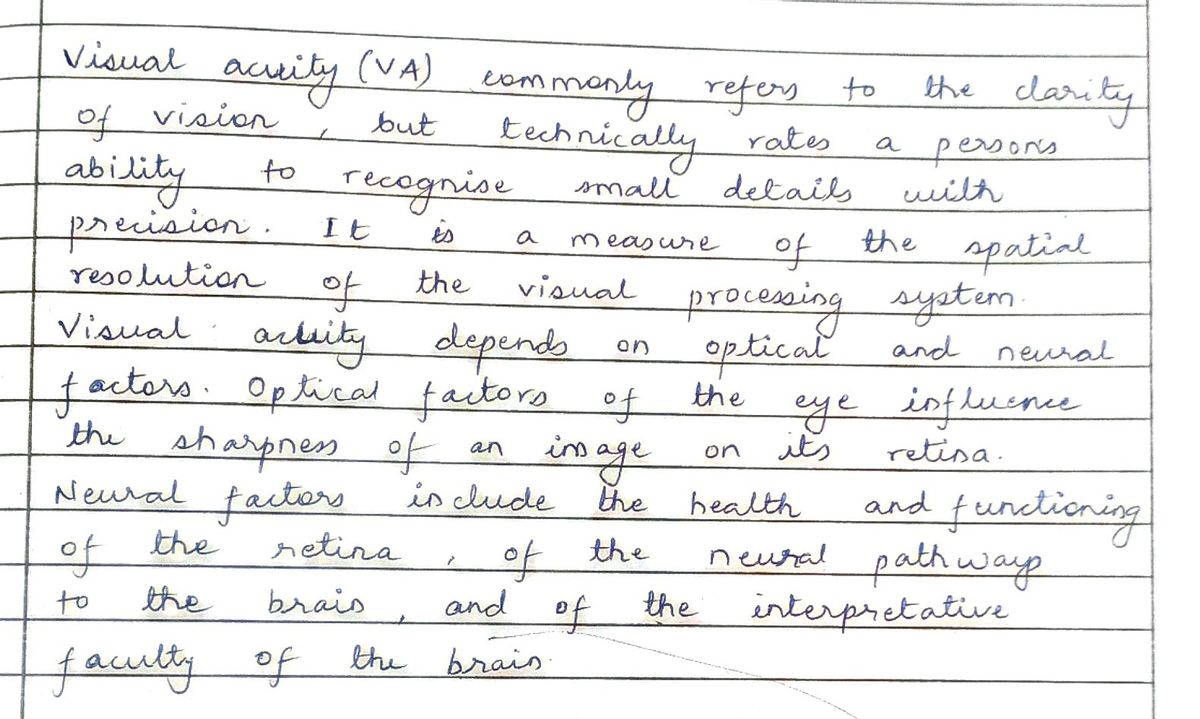 Visual acuity (VA) commonly refers to the clarity
of vision , but technically rates a persons
ability to recognise small details with
precision. It is a measure of the spatial
resolution of the visual processing system.
Visual acuity depends on optical and neural
factors. Optical factors of the eye influence
the sharpness of an image on its retina.
Neural factors include the health and functioning
of the retina , of the neural pathways
to the brain , and of the interpretative
faculty of the brain.